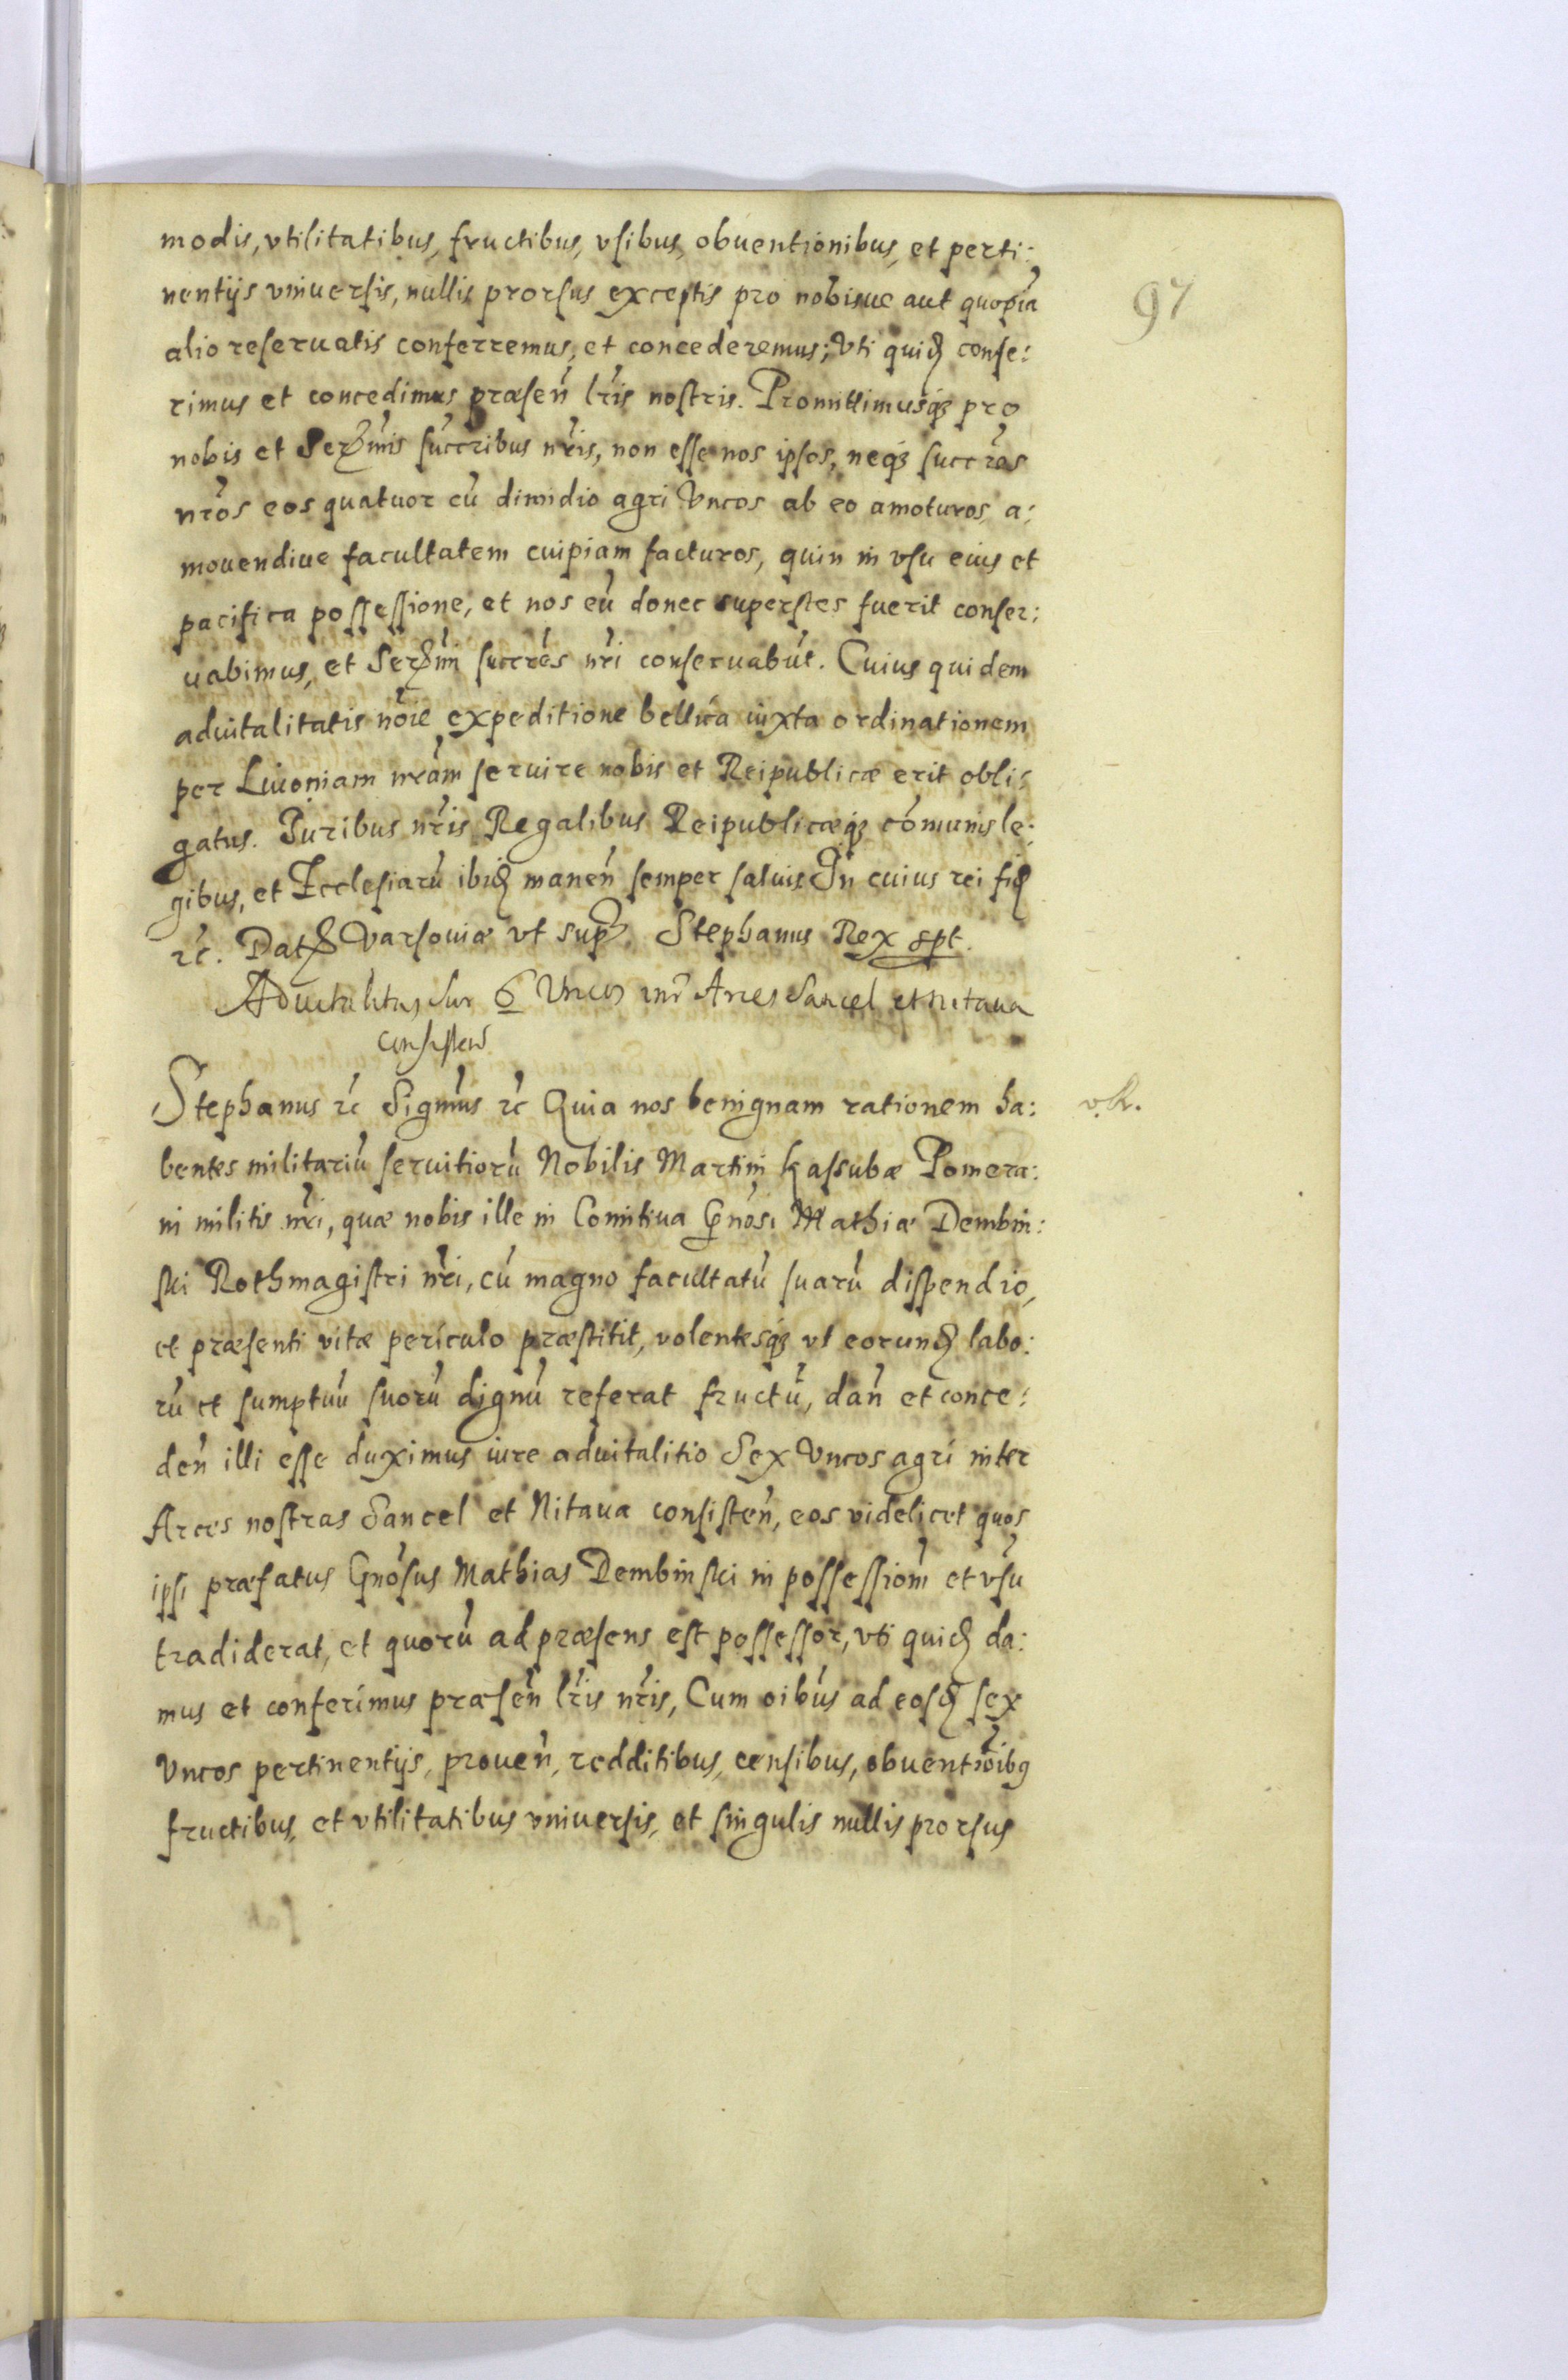 modis, vtilitatibus, fructibus, vsibus, obuentionibus, et perti:
nentijs vniuersis, nullis prorsus exceptis pro nobisue aut quopiã
97
alio reseruatis conferremus, et concederemus; Vti quiđ confe:
rimus et concedimus præseñ lr̃is nostris. Promittimusq₃ pro
nobis et Serẽmis succribus nr̃is, non esse nos ipsos, neq₃ succr̃es
nr̃os eos quatuor cũ dimidio agri Vncos ab eo amoturos, a:
mouendiue facultatem cuipiam facturos, quin in vsu eius et
pacifica possessione, et nos eũ donec superstes fuerit conser:
uabimus, et Serẽmi succr̃es nr̃i conseruabũt. Cuius quidem
aduitalitatis nõie expeditione bellica iuxta ordinationem
per Liuoniam nr̃am seruire nobis et Reipublicæ erit obli:
gatus. Iuribus nr̃is Regalibus Reipublicæq₃ cõmunis le:
gibus, et Ecclesiarũ ibiđ maneñ semper saluis In cuius rei fiđ
rc̃. Dat Varsouiæ vt sup. Stephanus Rex spt.
Aduitalitas sur 6 Vncos intr̃ Arces Sancel et Nitaua
consisteñ
Stephanus rc̃ Significamus rc̃ Quia nos benignam rationem ha:
v.k.
bentes militariũ seruitiorũ Nobilis Martini Kassubæ Pomera:
ni militis nr̃i, quæ nobis ille in Comitiua Gñosi Mathiæ Dembin:
ski Rothmagistri nr̃i, cũ magno facultatũ suarũ dispendio,
et præsenti vitæ periculo præstitit, volentesq₃ vt eorunđ labo:
rũ et sumptuũ suorũ dignũ referat fructũ, dañ et conce:
deñ illi esse duximus iure aduitalitio Sex Vncos agri inter
Arces nostras Sancel et Nitaua consisteñ, eos videlicet quos
ipsi præfatus Gñosus Mathias Dembinski in possessionẽ et vsũ
tradiderat, et quorũ ad præsens est possessor, vti quiđ da:
mus et conferimus præseñ lr̃is nr̃is, Cum oĩbus ad eosđ sex
Vncos pertinentijs, proueñ, redditibus, censibus, obuentiõibq
fructibus, et vtilitatibus vniuersis, et singulis nullis prorsus